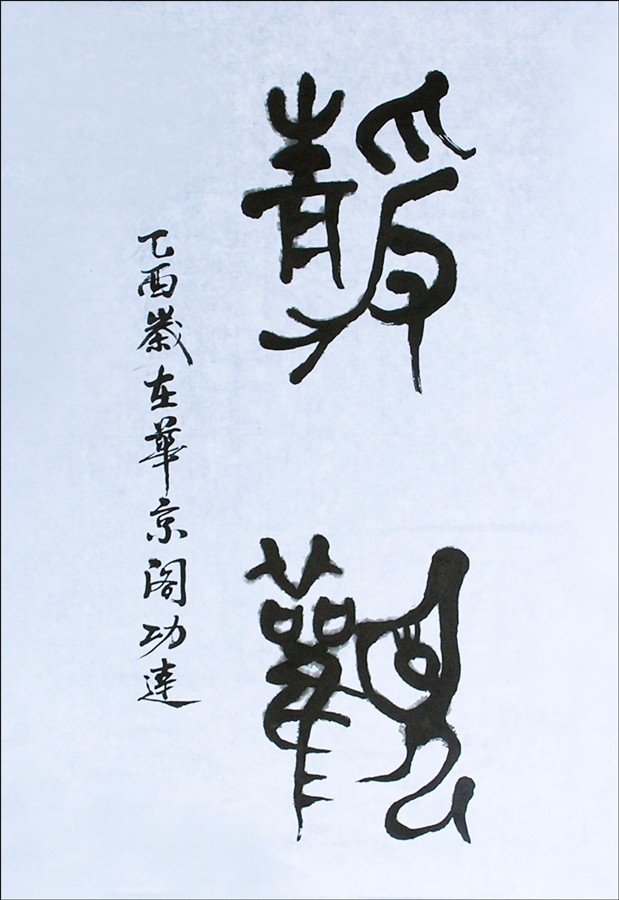 靜觀
乙酉歲在華京閣功達